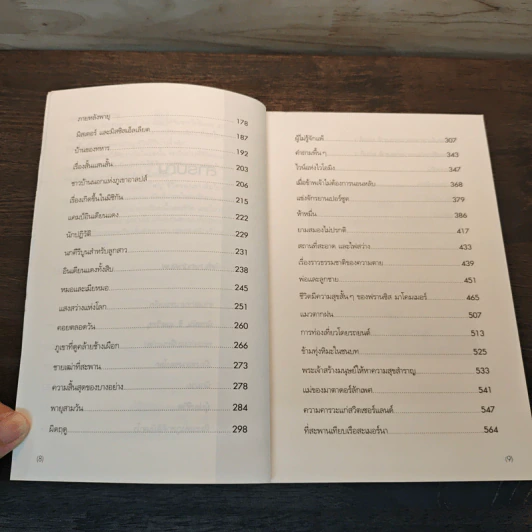 ภายหลังพายุ 178
มิสเตอร์ และมิสซิสเอ็ลเลียต 187
บ้านของทหาร 192
เรื่องสั้นแสนสั้น 203
ชาวบ้านแถบแห่งภูเขาแอลป์ส์ 206
เรื่องเกิดขึ้นในมิชิกัน 215
แคมป์อินเดียนแดง 222
นักปฏิวัติ 229
นกคีรีบูนสำหรับลูกสาว 231
อินเดียนแดงทั้งสิบ 238
หมอและเมียหมอ 245
แสงสว่างแห่งโลก 251
คอยตลอดวัน 260
ภูเขาที่ดูคล้ายช้างเผือก 266
ชายเฒ่าที่สะพาน 273
ความสิ้นสุดของบางอย่าง 278
พายุสามวัน 284
ผิดฤดู 298
(8)
ผู้ไม่รู้จักแพ้ 307
คำถามพื้นๆ 343
ไวน์แห่งไวโอมิง 347
เมื่อข้าพเจ้าไม่ต้องการนอนหลับ 368
แข่งจักรยานเปอร์ซูต 379
ห้าหมื่น 386
ยามสนองไมปรานี 417
สถานที่สะอาด และไฟสว่าง 433
เรื่องราวธรรมชาติของความตาย 439
พ่อและลูกชาย 451
ชีวิตมีความสุขสั้นๆ ของฟรานซิส มาโคมเมอร์ 465
แมวตากฝน 507
การท่องเที่ยวโดยรถยนต์ 513
ข้ามทุ่งหิมะในชนบท 525
พระเจ้าสร้างมนุษย์ให้หาความสุขสำราญ 533
แม่ของมาตาดอร์ลักเพศ 541
ความคารวะแก่สวิตเซอร์แลนด์ 547
ที่สะพานเทียบเรือสะเมอร์นา 564
(9)